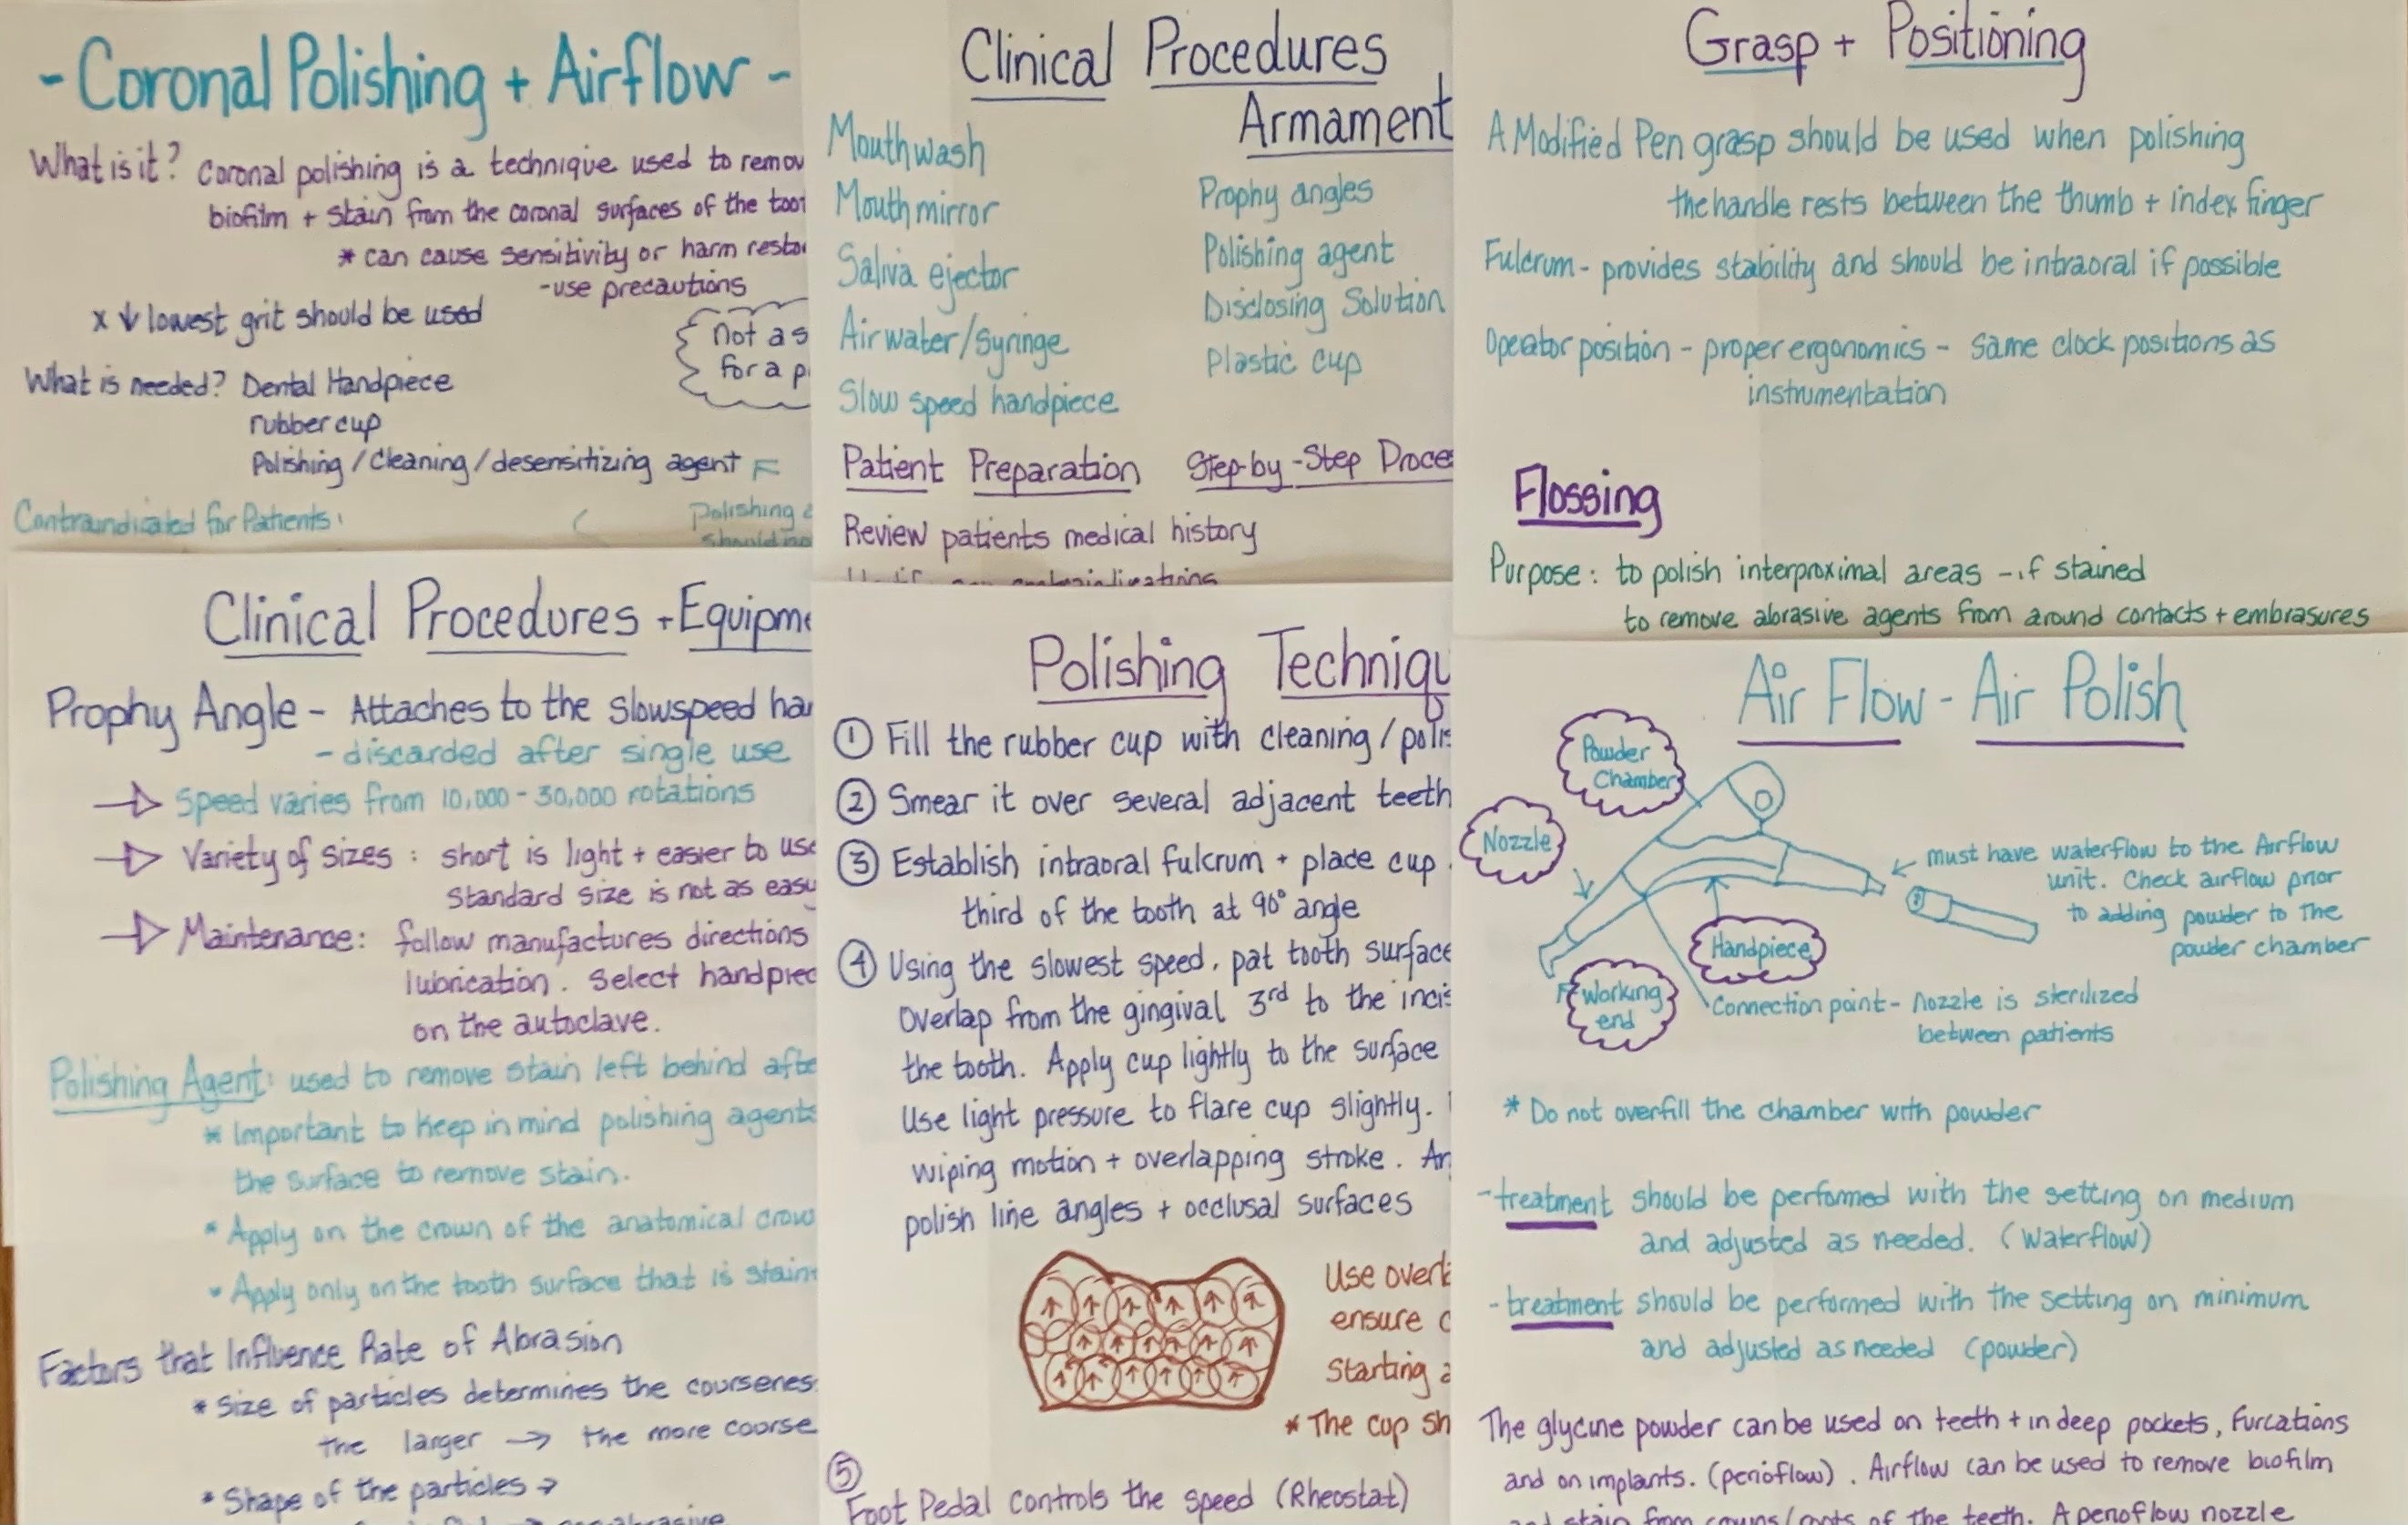 - Coronal Polishing + Airflow -
What is it? Coronal polishing is a technique used to remov
biofilm + stain from the coronal surfaces of the toot
* can cause sensitivity or harm resto
- use precautions
x ↓ lowest grit should be used
Not as
for a p
What is needed? Dental Handpiece
rubber cup
Polishing / Cleaning / desensitizing agent
Contraindicated for Patients:
Polishing
Clinical Procedures + Equipme
Prophy Angle - Attaches to the slowspeed ha
- discarded after single use
→ Speed varies from 10,000 - 30,000 rotations
→ Variety of sizes : short is light + easier to use
Standard size is not as easy
→ Maintenance: follow manufactures directions
lubrication. Select handpiec
on the autoclave.
Polishing Agent: used to remove stain left behind afte
* Important to keep in mind polishing agents
the surface to remove stain.
* Apply on the crown of the anatomical crow
* Apply only on the tooth surface that is stain
Factors that Influence Rate of Abrasion
* Size of particles determines the coursenes
the larger → the more course
* Shape of the particles →
Clinical Procedures
Armament
Mouthwash
Mouth mirror
Saliva ejector
Air water/syringe
Slow speed handpiece
Prophy angles
Polishing agent
Disclosing Solution
Plastic cup
Patient Preparation
Step-by-Step Proce
Review patients medical history
Polishing Techniqu
① Fill the rubber cup with cleaning / polis
② Smear it over several adjacent teeth
③ Establish intraoral fulcrum + place cup
third of the tooth at 90° angle
④ Using the slowest speed, pat tooth surface
Overlap from the gingival 3rd to the incis
the tooth. Apply cup lightly to the surface
Use light pressure to flare cup slightly.
wiping motion + overlapping stroke. An
polish line angles + occlusal surfaces
Use overl
ensure c
Starting a
* The cup sh
⑤
Foot Pedal controls the speed (Rheostat)
Grasp + Positioning
A Modified Pen grasp should be used when polishing
the handle rests between the thumb + index finger
Fulcrum - provides stability and should be intraoral if possible
Operator position - proper ergonomics - same clock positions as
instrumentation
Flossing
Purpose: to polish interproximal areas - if stained
to remove abrasive agents from around contacts + embrasures
Air Flow - Air Polish
Powder
Chamber
Nozzle
must have waterflow to the Airflow
unit. Check airflow prior
to adding powder to the
powder chamber
Handpiece
Working
end
Connection point - nozzle is sterilized
between patients
* Do not overfill the chamber with powder
- treatment should be performed with the setting on medium
and adjusted as needed. (Waterflow)
- treatment should be performed with the setting on minimum
and adjusted as needed (powder)
The glycine powder can be used on teeth + in deep pockets, furcations
and on implants. (perioflow). Airflow can be used to remove biofilm
and stain from crowns/roots of the teeth. A perioflow nozzle